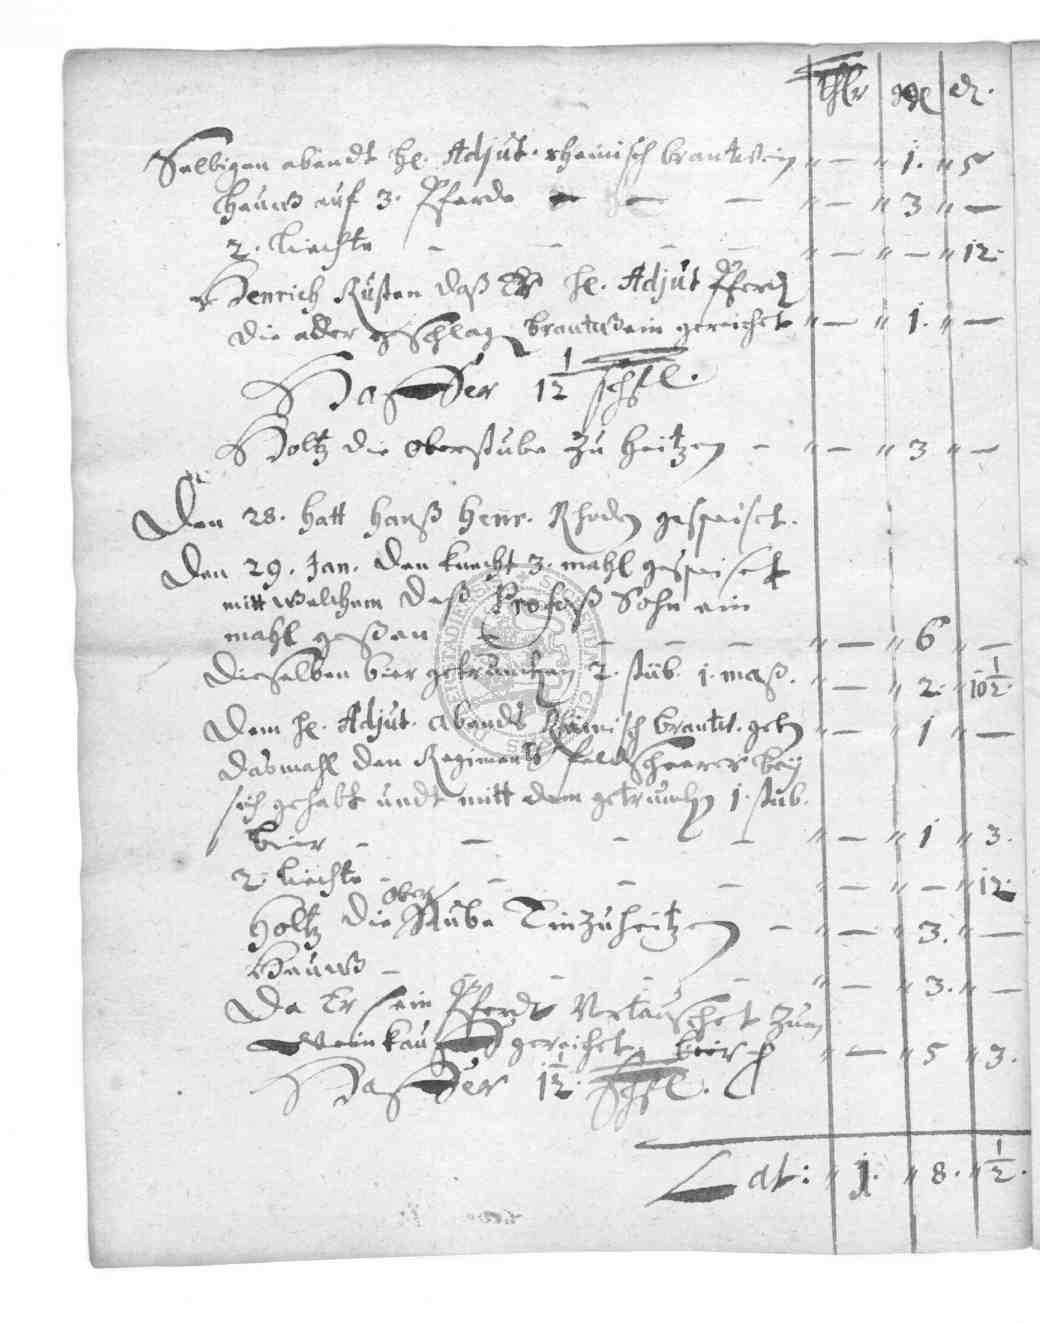 thlr ggl d.
Selbigen abendt hl. Adjut. rheinisch brantwein " — " 1. " 5
hauw auf 3. Pferde — — — " — " 3 " —
2. liechte — — — — " — " — " 12.
Henrich Rüsten daß Er hl. Adjut Pferd
die ader geschlagen brantwein gereichet " — " 1. " —
Haffer 1 1/2 schfl.
Holtz die oberstube zu heitzen — " — " 3 " —
Den 28. hatt hanß Henr. Rhoden gespeiset.
Den 29. Jan. den knecht 3. mahl gespeiset
mitt welchem deß Profoß Sohn ein
mahl geßen — — — — " — " 6 " —
dieselben bier getruncken 2. stüb. 1. maß. " — " 2. " 10 1/2.
Dem hl. Adjut. abends Rheinisch brantw. geben " — " 1 " —
dasmahl den Regiments feldscheerer bey
sich gehabt undt mitt dem getruncken 1. stüb.
bier — — — — " — " 1 " 3.
2. liechte — — — — " — " — " 12.
Holtz die ober Stube Einzuheitzen — " — " 3. " —
Hauw — — — — — " — " 3. " —
Da Er sein Pferdt Vertauschet zum
weinkauff gereichet bier " — " 5 " 3.
Haffer 1 1/2. schfl.
Lat: " 1. " 8. " 1/2.